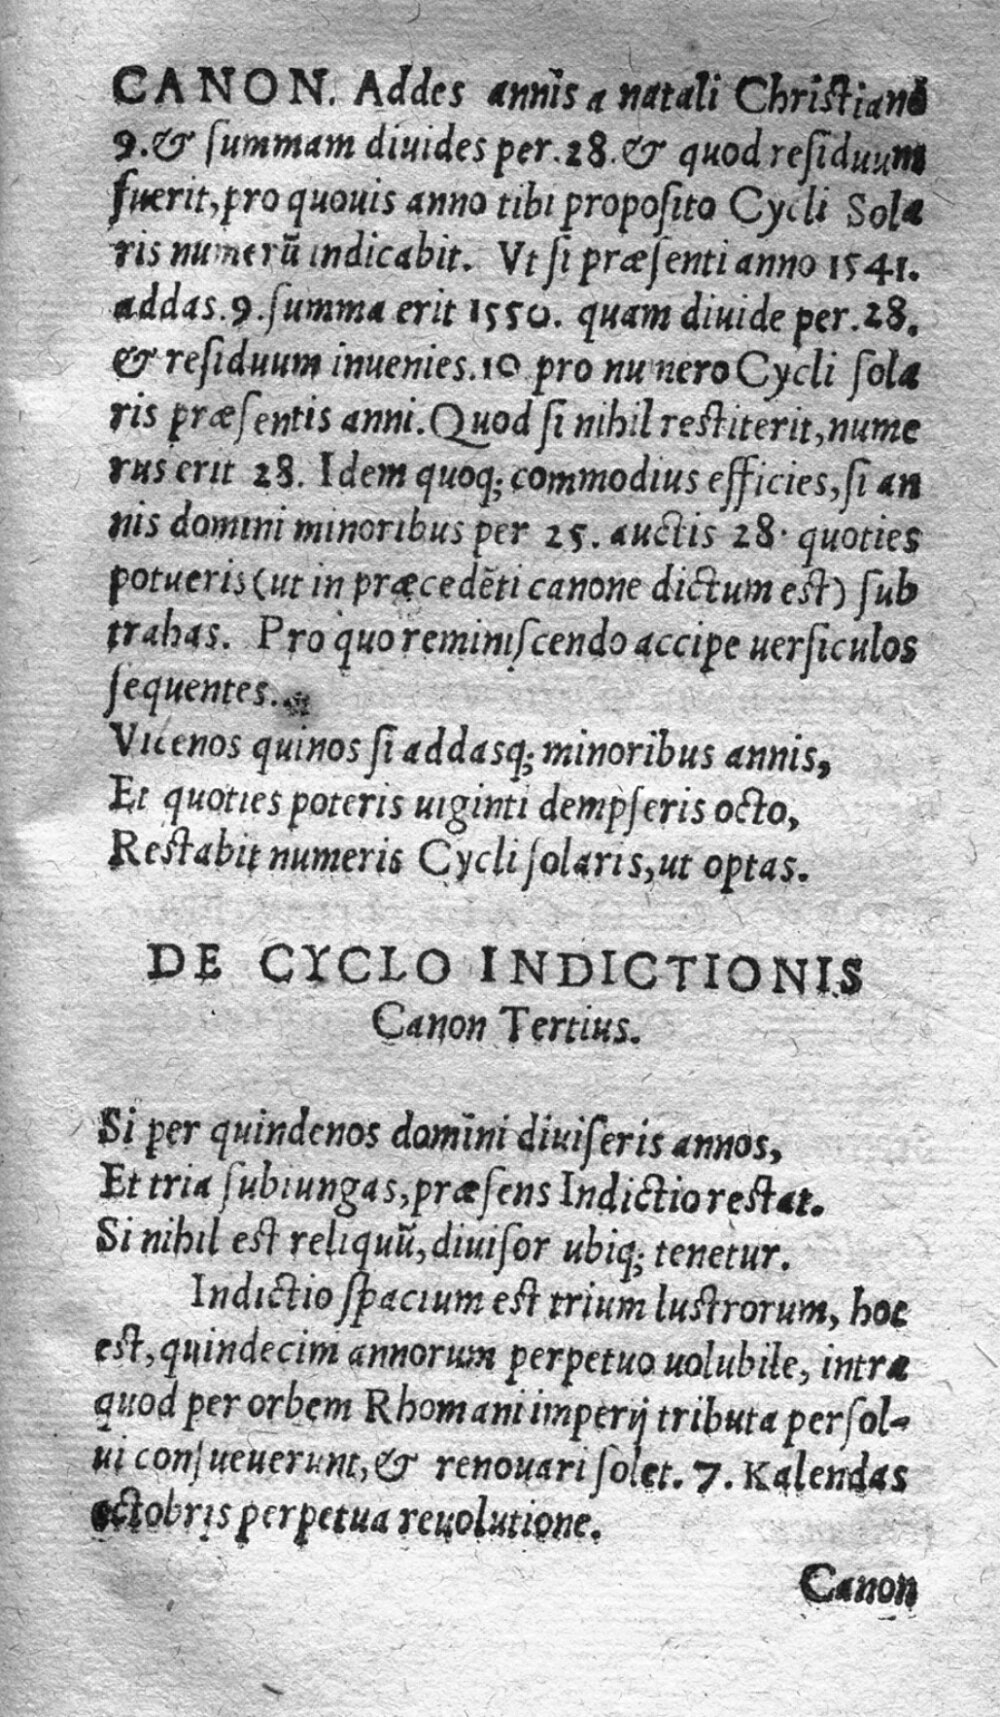 CANON. Addes annis a natali Christiano
9. & ſummam diuides per. 28. & quod reſiduum
fuerit, pro quouis anno tibi propoſito Cycli Sola
ris numerū indicabit. Vt ſi præſenti anno 1541.
addas. 9. ſumma erit 1550. quam diuide per. 28.
& reſiduum inuenies. 10 pro numero Cycli ſola
ris præſentis anni. Quod ſi nihil reſtiterit, nume
rus erit 28. Idem quoq; commodius efficies, ſi an
nis domini minoribus per 25. auctis 28. quoties
potueris (ut in præcedēti canone dictum eſt) ſub
trahas. Pro quo reminiſcendo accipe uerſiculos
ſequentes.
Vicenos quinos ſi addasq; minoribus annis,
Et quoties poteris uiginti dempſeris octo,
Reſtabit numeris Cycli ſolaris, ut optas.
DE CYCLO INDICTIONIS
Canon Tertius.
Si per quindenos domini diuiſeris annos,
Et tria ſubiungas, præſens Indictio reſtat.
Si nihil eſt reliquū, diuiſor ubiq; tenetur.
Indictio ſpacium eſt trium luſtrorum, hoc
eſt, quindecim annorum perpetuo uolubile, intra
quod per orbem Rhomani imperij tributa perſol-
ui conſueuerunt, & renouari ſolet. 7. Kalendas
octobris perpetua reuolutione.
Canon